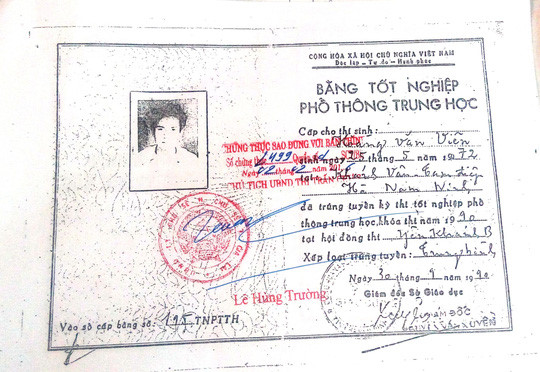 CỘNG HÒA XÃ HỘI CHỦ NGHĨA VIỆT NAM
Độc lập - Tự do - Hạnh phúc
BẰNG TỐT NGHIỆP
PHỔ THÔNG TRUNG HỌC
Cấp cho thí sinh:
Văn Viên
sinh ngày 25 tháng 5 năm 1972
Khánh Vân - Tam Điệp
Hà Nam Ninh
đã trúng tuyển kỳ thi tốt nghiệp phổ
thông trung học, khóa thi năm 1990
tại hội đồng thi Yên Khánh B
Xếp loại trúng tuyển: Trung bình
Ngày 30 tháng 9 năm 1990
Giám đốc Sở Giáo dục
CHỨNG THỰC SAO ĐÚNG VỚI BẢN CHÍNH
Số chứng thực 1499
CHỦ TỊCH UBND THỊ TRẤN
Lê Hùng Trường
Vào sổ cấp bằng số: 195 TNPTTH